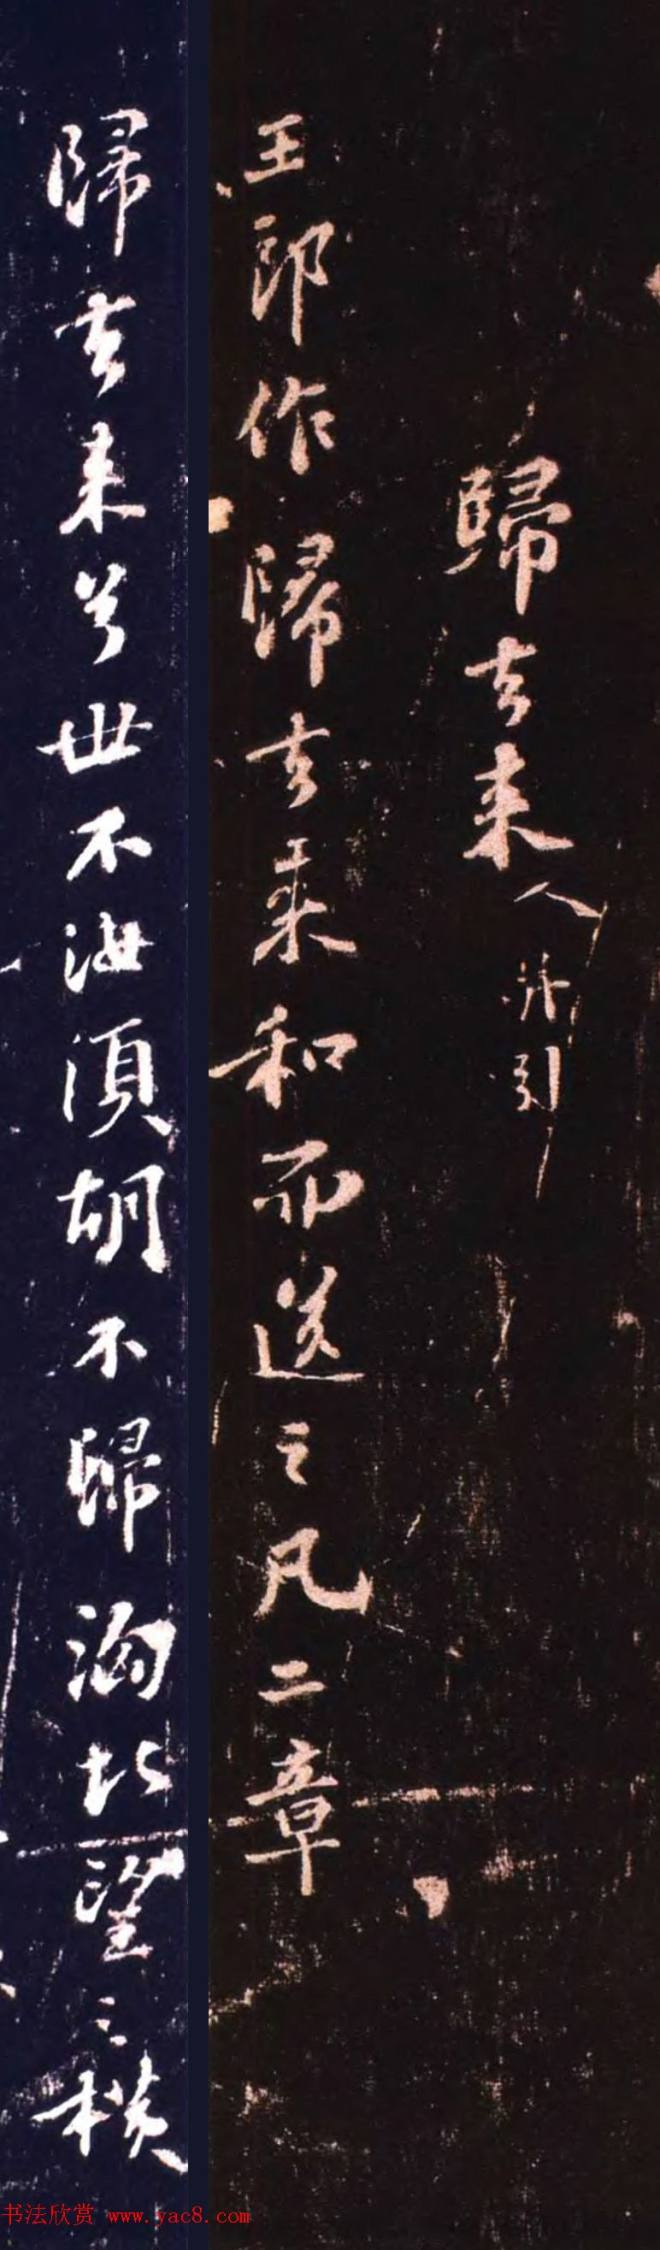 歸去来人并引
王郎作歸去来和而送之凡二章
歸去来兮世不汝須胡不歸洵北望之横
书法欣赏 www.yac8.com